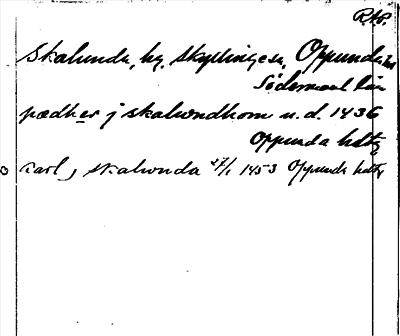 R.A.P.
Skalunda, hg, Skyttinge sn, Oppunda hd
Södermanl län
pædher j skalwndhom u.d. 1436
Oppunda hdtg
karl j skalwnda 27/1 1453 Oppunda hdtg